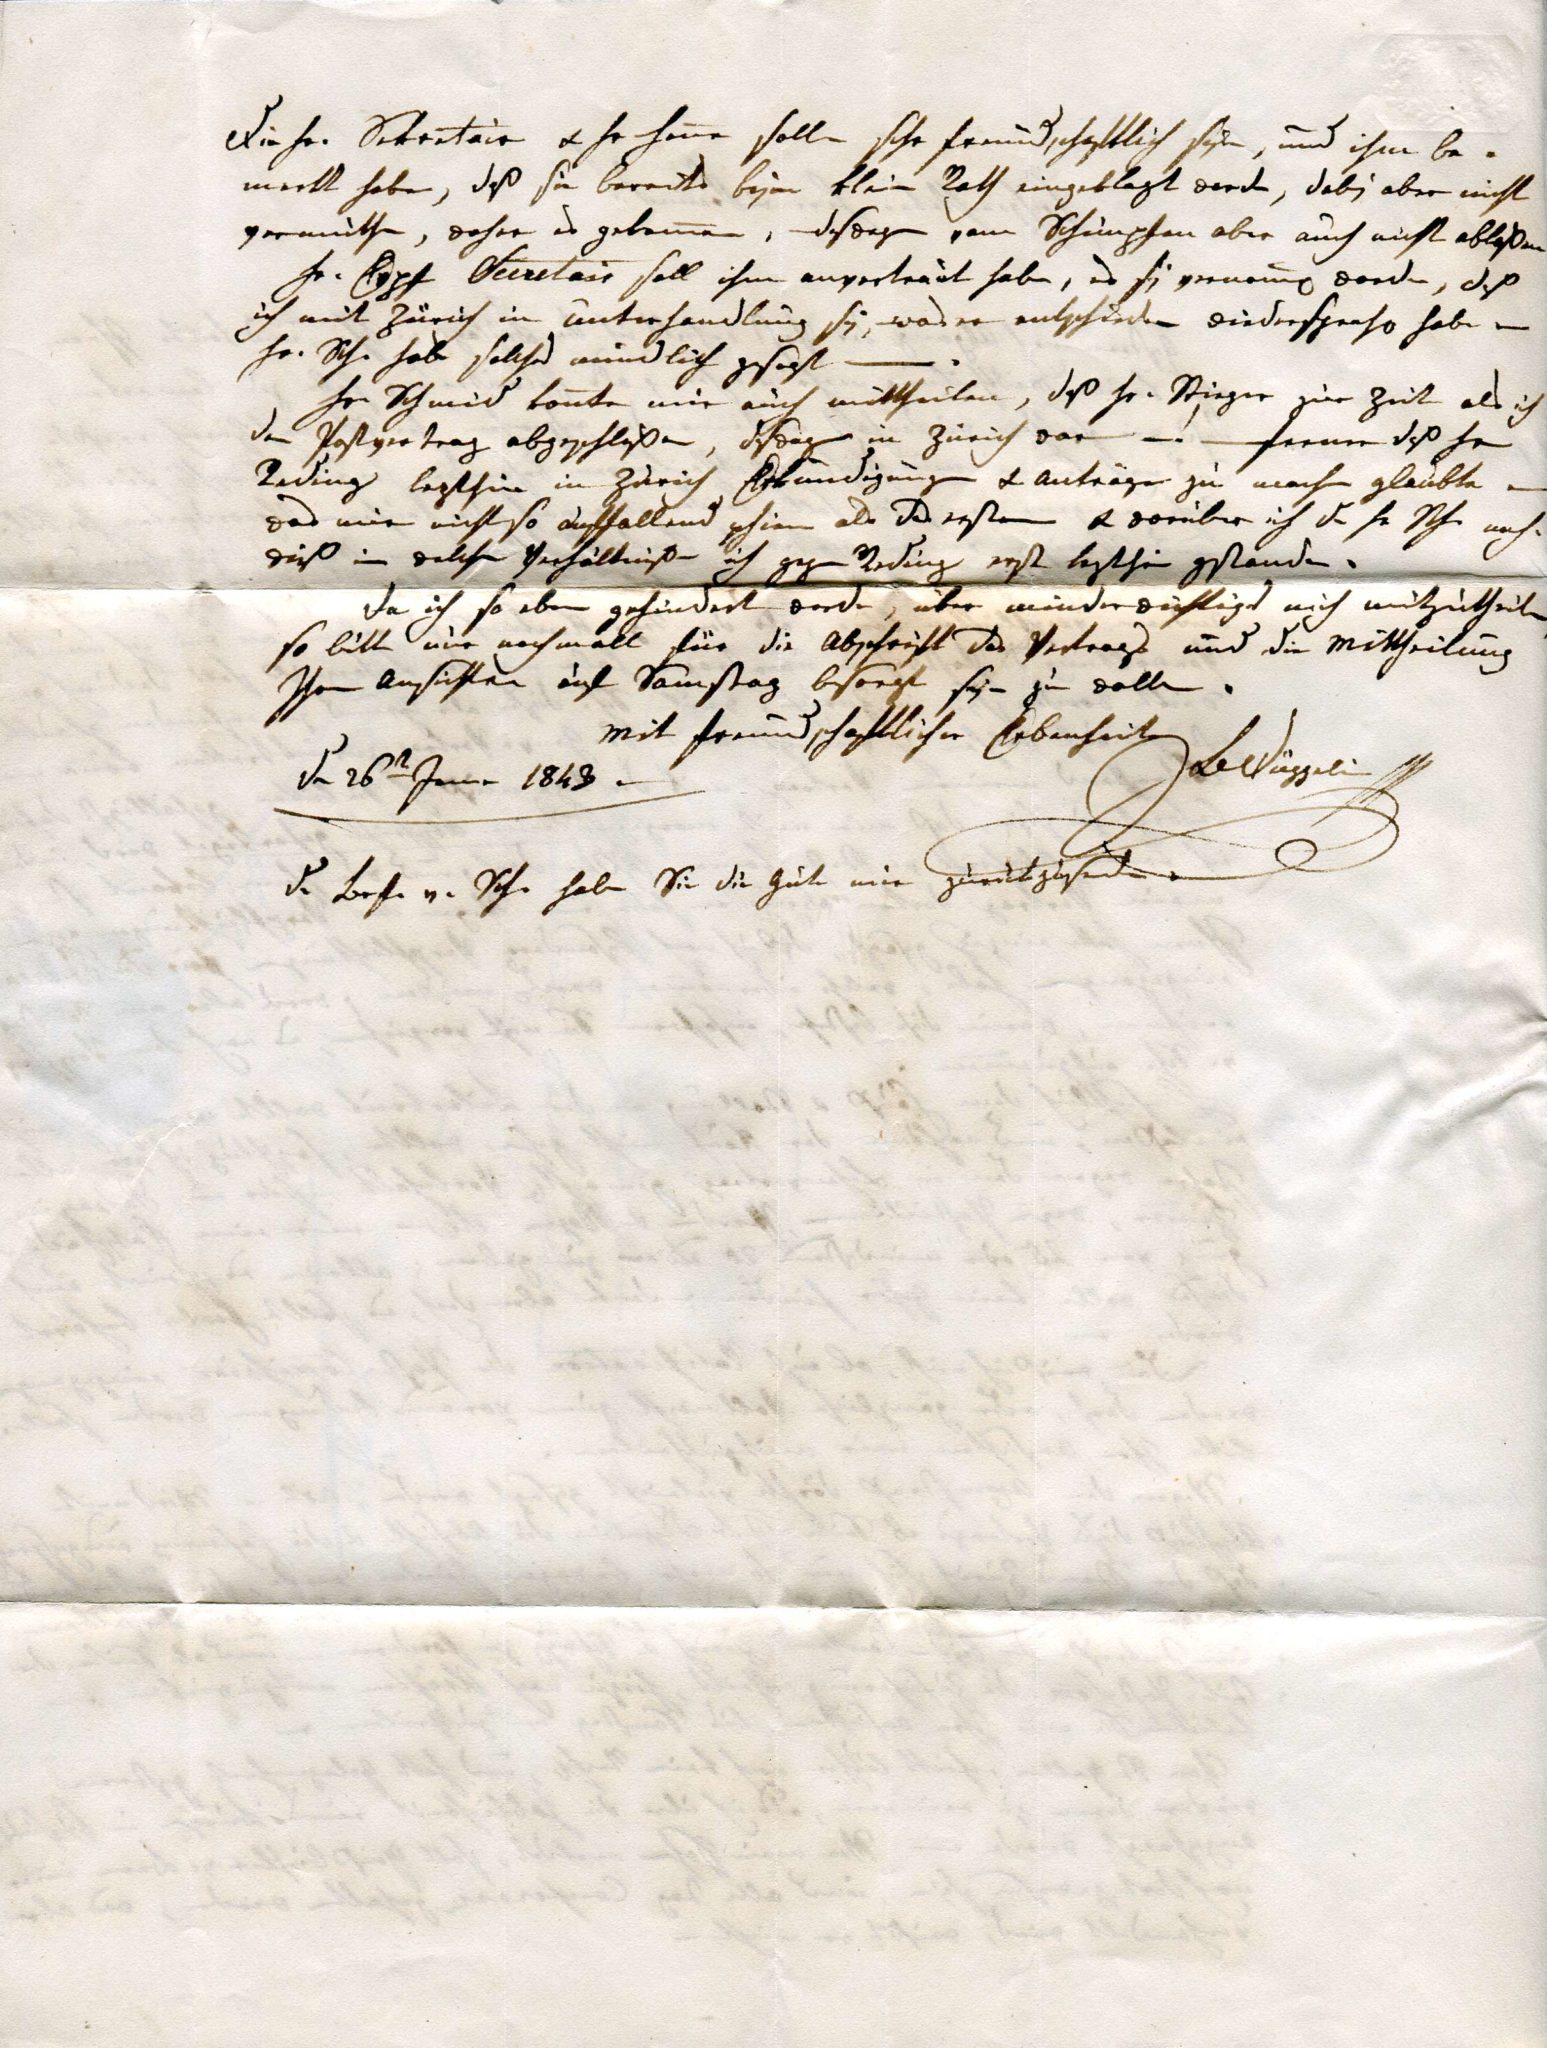 Die Hr. Sekretair & Hr Haue solln sehr freundschaftlich sein, und ihm be=
merkt haben, daß sie bereits beim klein Rath eingeklagt word, dabei aber nicht
vermuthe, woher es gekommen, deßweg vom Schimpfen aber auch nicht ablaßen
Hr. Secretair soll ihm anvertraut haben, es sei vernom̄en worden, daß
ich mit Zürich in Unterhandlung sei, was er entschieden widersproche habe –
Hr. Sch. habe solches mündlich gesagt — .
Hr Schmid konte mir auch mittheilen, daß Hr. Stieger zur Zeit als ich
den Postvertrag abgeschloßen, deßweg in Zürich war — ferner daß Hr
Reding letzthin in Zürich Erkundigungen & Anträge zu machen glaubte –
das mir nicht so auffallend schien als das erstere & worüber ich den Hr Sch. nach=
wieß in welchen Verhältniße ich gegen Reding erst letzthin gestanden.
Da ich so eben gehindert werde, über minderwichtiges mich mitzutheilen,
so bitte nur nochmall für die Abschrift des Vertrags und die Mittheilung
Ihrer Ansichten auf Samstag besorgt sein zu wollen.
Mit freundschaftlicher Ergebenheit
Den 26n Janr 1843.
Den Brf. v. Sch. haben Sie die Güte mir zurückzusenden.